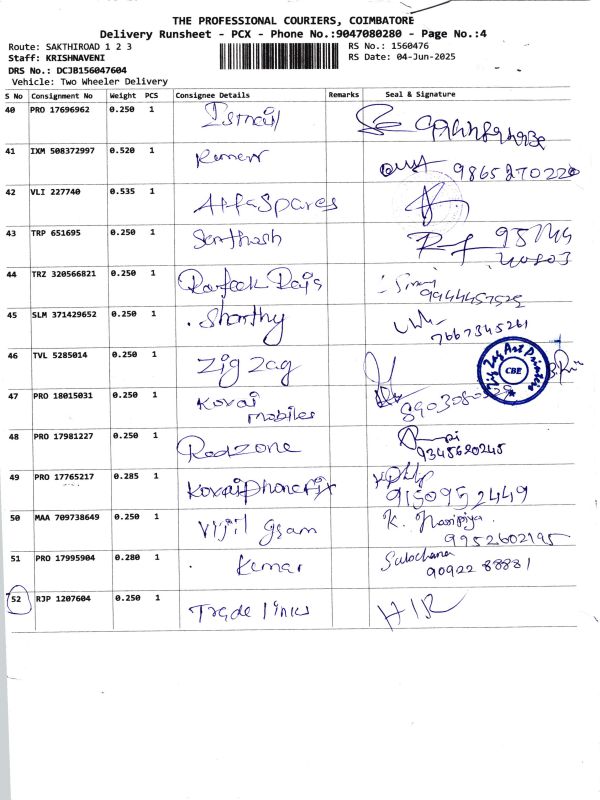 THE PROFESSIONAL COURIERS, COIMBATORE
Delivery Runsheet - PCX - Phone No.:9047080280 - Page No.:4
Route: SAKTHIROAD 1 2 3
RS No.: 1560476
Staff: KRISHNAVENI
RS Date: 04-Jun-2025
DRS No.: DCJB156047604
Vehicle: Two Wheeler Delivery
S No Consignment No Weight PCS Consignee Details Remarks Seal & Signature
40 PRO 17696962 0.250 1 Ismail
41 IXM 508372997 0.520 1 9865270220
42 VLI 227740 0.535 1 Alfa Spares
43 TRP 651695 0.250 1 Santhosh
44 TRZ 320566821 0.250 1 9944457525
45 SLM 371429652 0.250 1 7667345261
46 TVL 5285014 0.250 1 Zig Zag Zig Zag Art Printers CBE
47 PRO 18015031 0.250 1 Kovai
mobiles
48 PRO 17981227 0.250 1 Redzone 9345620245
49 PRO 17765217 0.285 1 Kovaiphonefix 9150952449
50 MAA 709738649 0.250 1 9952602195
51 PRO 17995904 0.280 1 Kumar Sulochana
90922 88881
52 RJP 1207604 0.250 1 Trade links